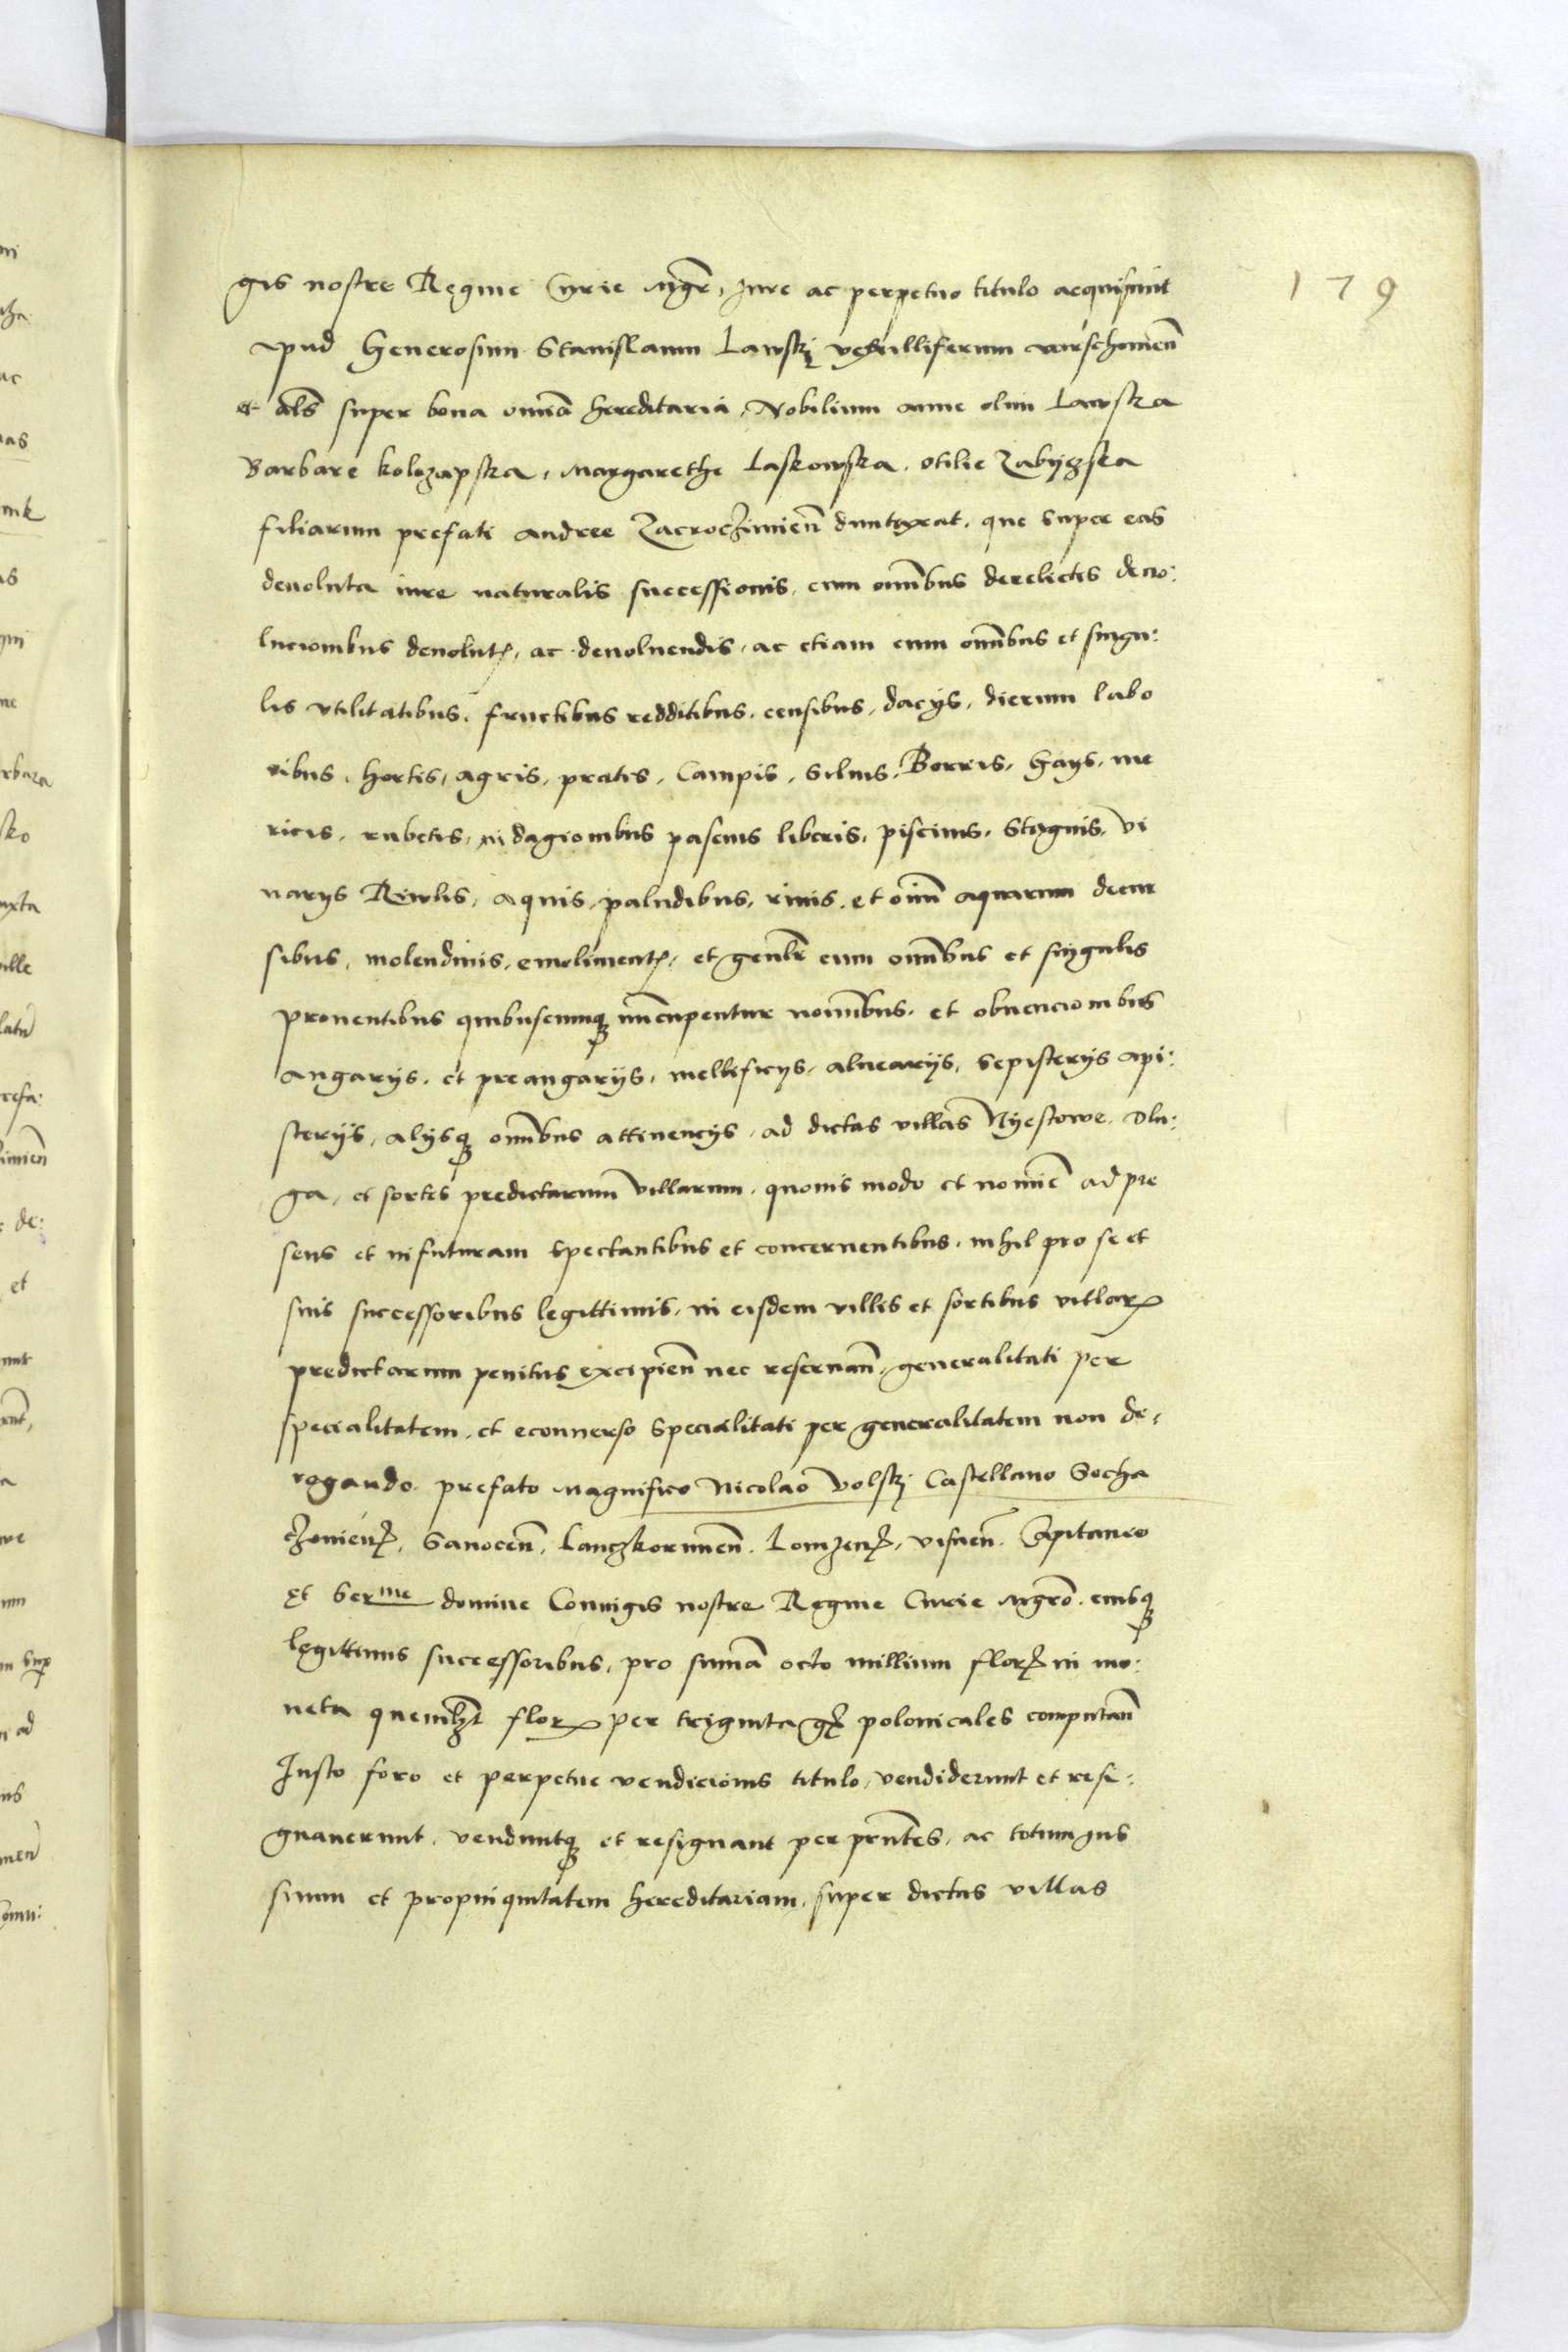 179
gis nostre Regine Curie mgr̄, Jure ac perpetuo titulo acquisiuit
apud Generosum Stanislaum Lawskj vexilliferum varschouien̄
et al̄s super bona om̄ia hereditaria, Nobilium anne olim Lawska
Barbare kolozapska, Margarethe Laskowska, otilie Zabyzska
filiarum prefati andree Zacrocziimien̄ duntaxat, que super eas
deuoluta iure naturalis successionis, cum om̄ibus derelictis deuo:
lucionibus deuolut̨, ac deuoluendis, ac etiam cum om̄ibus et singu:
lis vtilitatibus, fructibus redditibus, censibus, dacijs, dierum labo
ribus, hortis, agris, pratis, Campis, Siluis, Borris, Gays, me
ricis, rubetis, indaginibus pascuis liberis, piscinis, Stagnis, vi
uarijs Riwlis, aquis, paludibus, riuis, et om̄i aquarum decur
sibus, molendinis, emoliment̨, et gen̄lr cum om̄ibus et singulis
prouentibus quibuscunq̨ nūcupentur nom̄ibus, et obuencionibus
angarijs, et preangarijs, mellificijs, aluearijs, Sepisterijs api:
sterijs, alijsq̨ om̄ibus attinencijs, ad dictas villas Nyestowe, Dlu:
ga, et sortes predictarum villarum, quouis modo et nomīe ad pre
sens et in futuram spectantibus et concernentibus, nihil pro se et
suis successoribus legittimis, in eisdem villis et sortibus villar̨
predictarum penitus excipien̄ nec reseruan̄, generalitati per
specialitatem, et econuerso specialitati per generalitatem non de:
rogando, prefato magnifico Nicolao Volskj Castellano Socha
czouien̨, Sanocen̄, Lanczkorunen̄, Lomzen̨, visnen̄, Capitaneo
et Ser<sup>me</sup> domine Coniugis nostre Regine Curie mgrō, eiusq̨
legittimis successoribus, pro sum̄a octo millium flor̨ in mo:
neta quemlꝫt flor̨ per triginta g̨ polonicales computan̄
Justo foro et perpetue vendicionis titulo, vendiderunt et resi:
gnauerunt, venduntq̨ et resignant per prn̄tes, ac totum jus
suum et propinquitatem hereditariam, super dictas villas